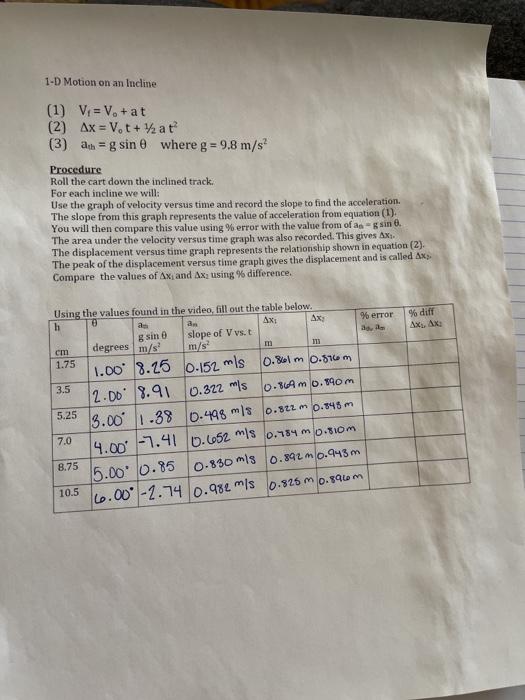 1-D Motion on an Incline
(1) Vf = Vo + a t
(2) Δx = Vo t + ½ a t²
(3) ath = g sin θ where g = 9.8 m/s²
Procedure
Roll the cart down the inclined track.
For each incline we will:
Use the graph of velocity versus time and record the slope to find the acceleration.
The slope from this graph represents the value of acceleration from equation (1).
You will then compare this value using % error with the value from of ath = g sin θ.
The area under the velocity versus time graph was also recorded. This gives Δx₁.
The displacement versus time graph represents the relationship shown in equation (2).
The peak of the displacement versus time graph gives the displacement and is called Δx₂.
Compare the values of Δx₁ and Δx₂ using % difference.
Using the values found in the video, fill out the table below.
h θ ath am Δx₁ Δx₂ % error % diff
g sin θ slope of V vs. t ath, am Δx₁, Δx₂
cm degrees m/s² m/s² m m
1.75 1.00° 8.25 0.152 m/s 0.861 m 0.876 m
3.5 2.00° 8.91 0.322 m/s 0.869 m 0.890 m
5.25 3.00° 1.38 0.498 m/s 0.822 m 0.845 m
7.0 4.00° -7.41 0.652 m/s 0.784 m 0.810 m
8.75 5.00° 0.85 0.830 m/s 0.892 m 0.943 m
10.5 6.00° -2.74 0.982 m/s 0.825 m 0.896 m